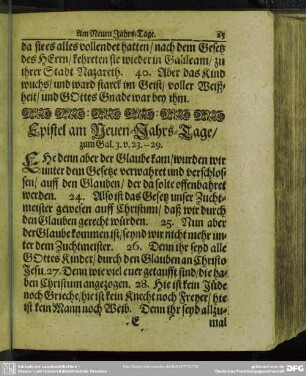 Am Neuen Jahrs-Tage. 25
da sie es alles vollendet hatten / nach dem Gesetz
des HErrn / kehreten sie wieder in Galileam / zu
ihrer Stadt Nazareth. 40. Aber das Kind
wuchs / und ward starck im Geist / voller Weiß-
heit / und GOttes Gnade war bey ihm.
Epistel am Neuen-Jahrs-Tage /
zum Gal. 3. v. 23. - 29.
EHe denn aber der Glaube kam / wurden wir
unter dem Gesetze verwahret und verschlos-
sen / auff den Glauben / der da solte offenbahret
werden. 24. Also ist das Gesetz unser Zucht-
meister gewesen auff Christum / daß wir durch
den Glauben gerecht würden. 25. Nun aber
der Glaube kommen ist / seynd wir nicht mehr un-
ter dem Zuchtmeister. 26. Denn ihr seyd alle
GOttes Kinder / durch den Glauben an Christo
Jesu. 27. Denn wie viel euer getaufft sind / die ha-
ben Christum angezogen. 28. Hie ist kein Jüde
noch Grieche / hie ist kein Knecht noch Freyer / hie
ist kein Mann noch Weib. Denn ihr seyd allzu-
E mal
DFG